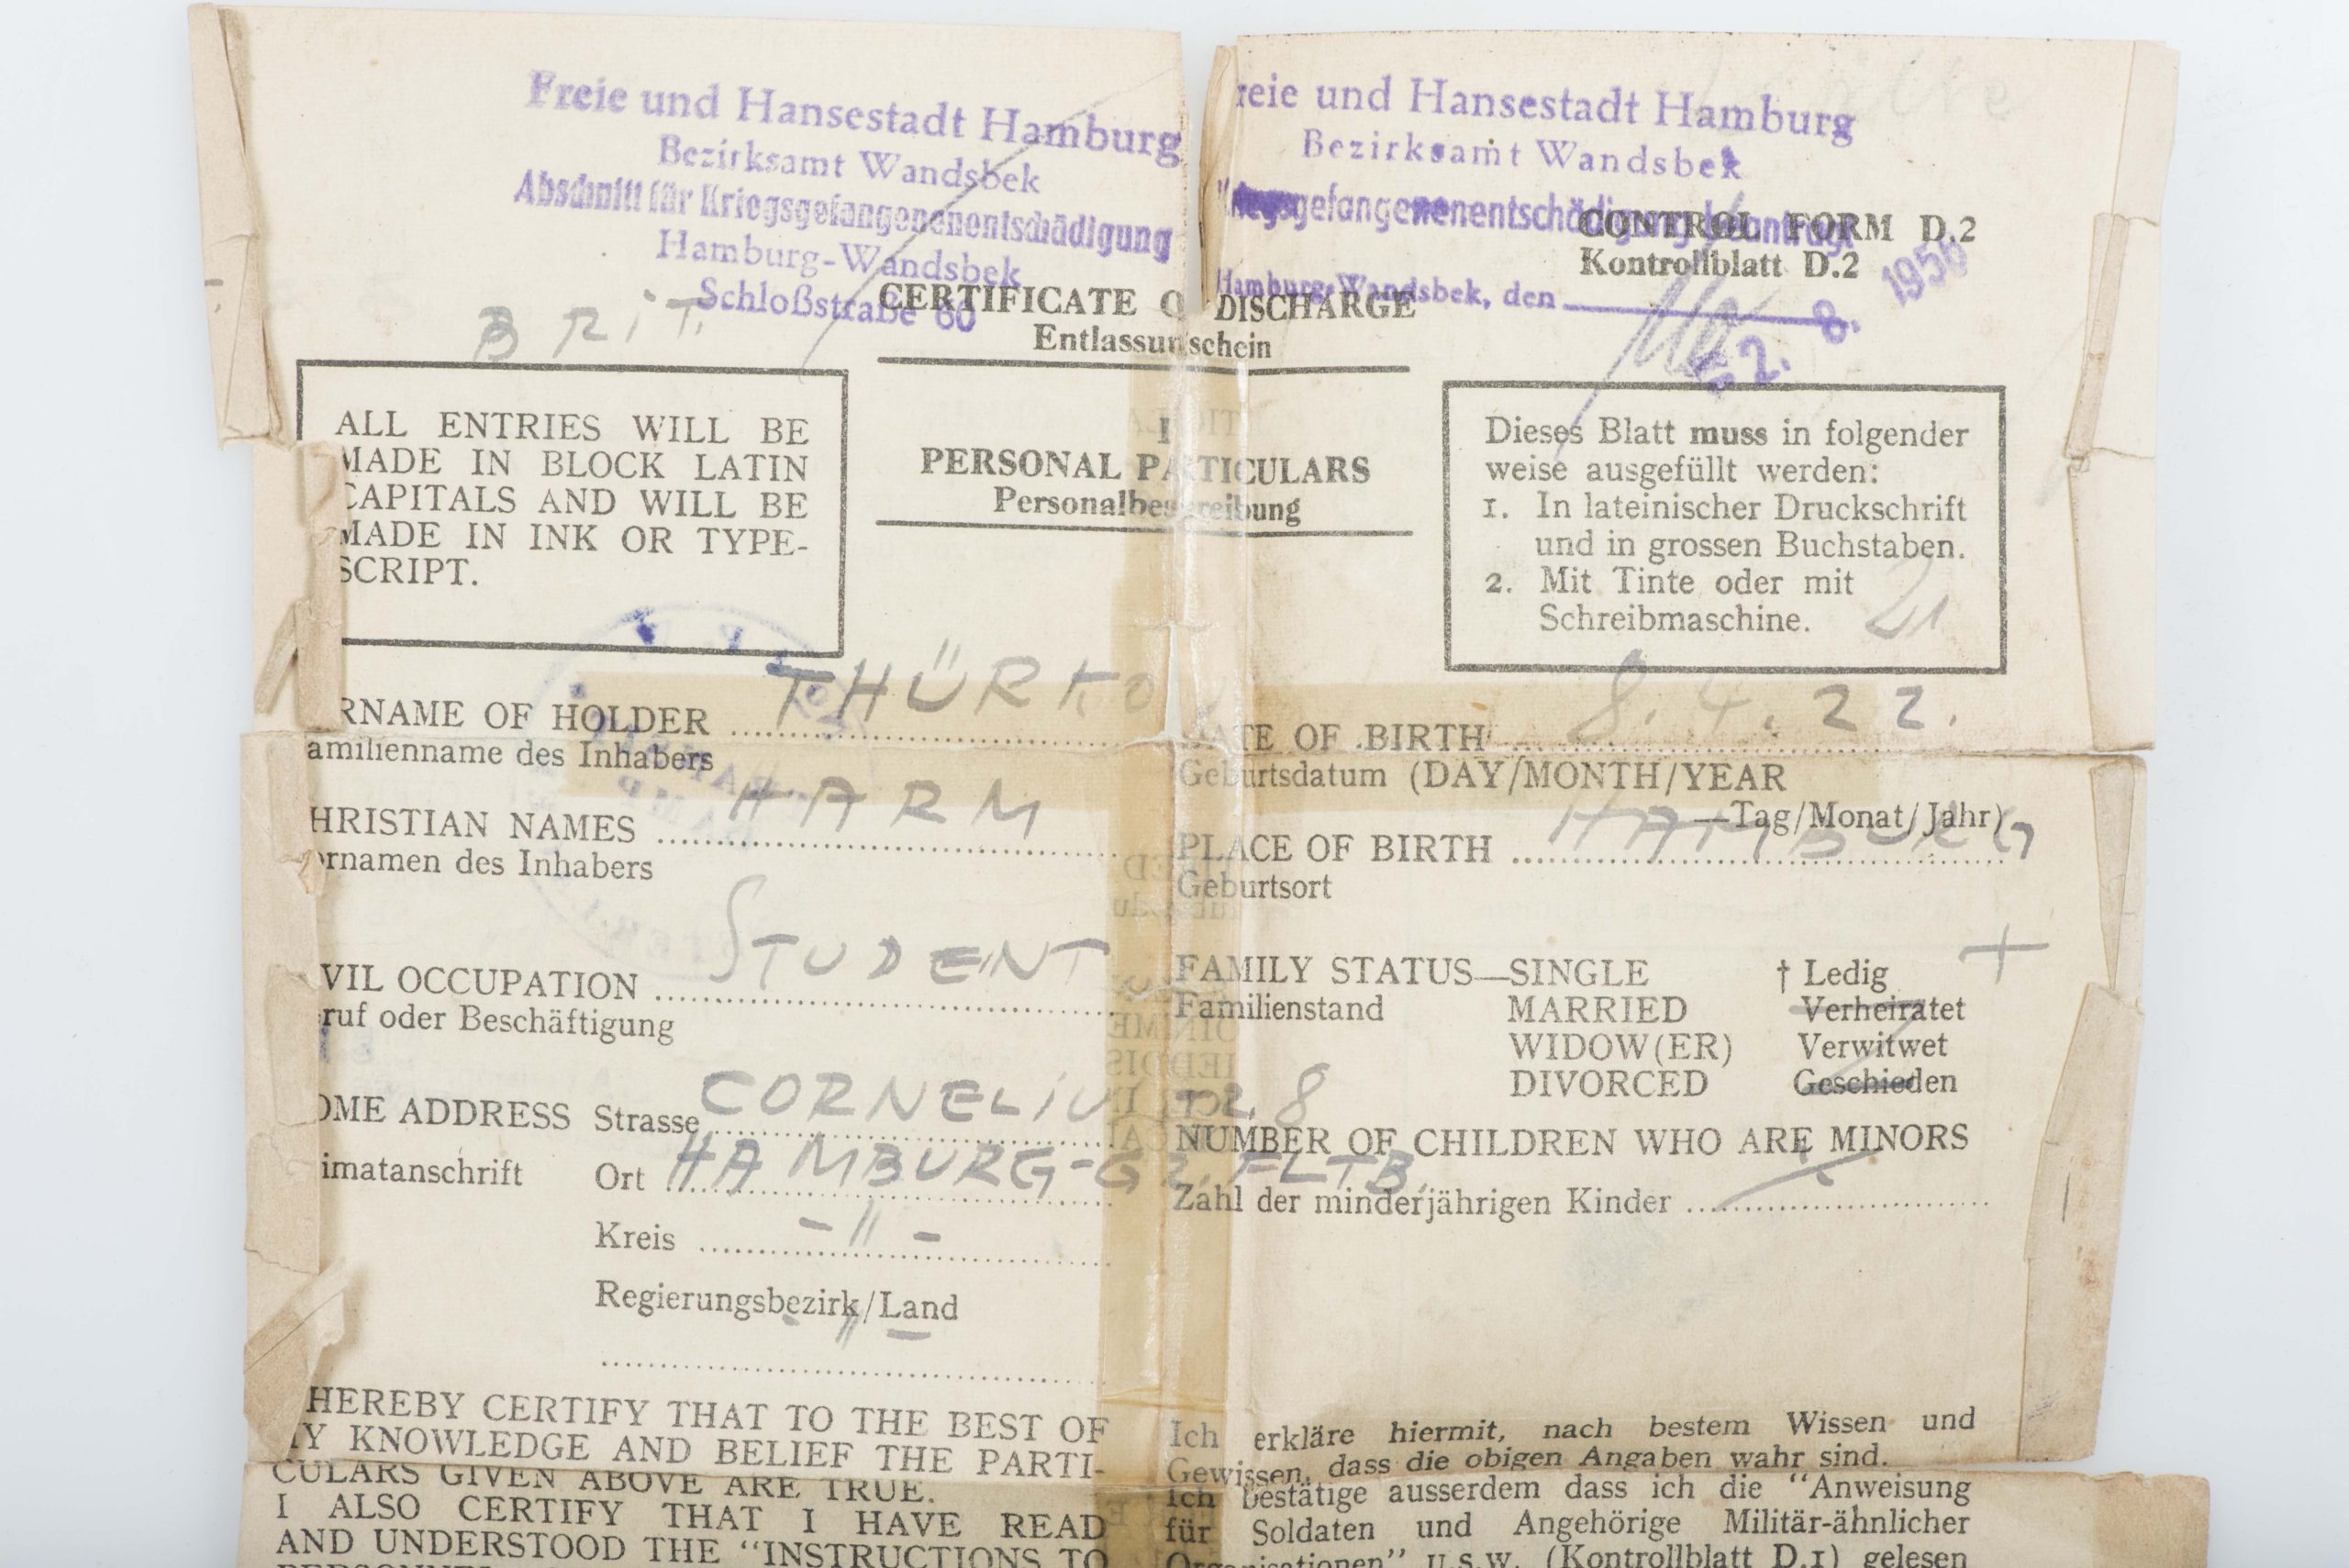 Freie und Hansestadt Hamburg
Bezirksamt Wandsbek
Abschnitt für Kriegsgefangenenentschädigung
Hamburg-Wandsbek
Schloßstraße 60
reie und Hansestadt Hamburg
Bezirksamt Wandsbek
Kriegsgefangenenentschädigung beantragt
Hamburg-Wandsbek, den
2. 8. 1956
CONTROL FORM D.2
Kontrollblatt D.2
BRIT.
CERTIFICATE O DISCHARGE
Entlassun schein
ALL ENTRIES WILL BE
MADE IN BLOCK LATIN
CAPITALS AND WILL BE
MADE IN INK OR TYPE-
SCRIPT.
I
PERSONAL PARTICULARS
Personalbeschreibung
Dieses Blatt muss in folgender
weise ausgefüllt werden:
1. In lateinischer Druckschrift
und in grossen Buchstaben.
2. Mit Tinte oder mit
Schreibmaschine.
21
RNAME OF HOLDER THÜRKO
amilienname des Inhabers
HRISTIAN NAMES HARM
ornamen des Inhabers
VIL OCCUPATION STUDENT
ruf oder Beschäftigung
OME ADDRESS Strasse CORNELIU 8
imatanschrift Ort HAMBURG-GR. FLTB.
Kreis -"-
Regierungsbezirk/Land
-"-
DATE OF BIRTH 8.4.22.
Geburtsdatum (DAY/MONTH/YEAR
—Tag/Monat/Jahr)
PLACE OF BIRTH HAMBURG
Geburtsort
FAMILY STATUS—SINGLE † Ledig +
Familienstand MARRIED Verheiratet
WIDOW(ER) Verwitwet
DIVORCED Geschieden
NUMBER OF CHILDREN WHO ARE MINORS
Zahl der minderjährigen Kinder
HEREBY CERTIFY THAT TO THE BEST OF
MY KNOWLEDGE AND BELIEF THE PARTI-
CULARS GIVEN ABOVE ARE TRUE.
I ALSO CERTIFY THAT I HAVE READ
AND UNDERSTOOD THE "INSTRUCTIONS TO
Ich erkläre hiermit, nach bestem Wissen und
Gewissen, dass die obigen Angaben wahr sind.
Ich bestätige ausserdem dass ich die "Anweisung
für Soldaten und Angehörige Militär-ähnlicher
Organisationen" u.s.w. (Kontrollblatt D.1) gelesen